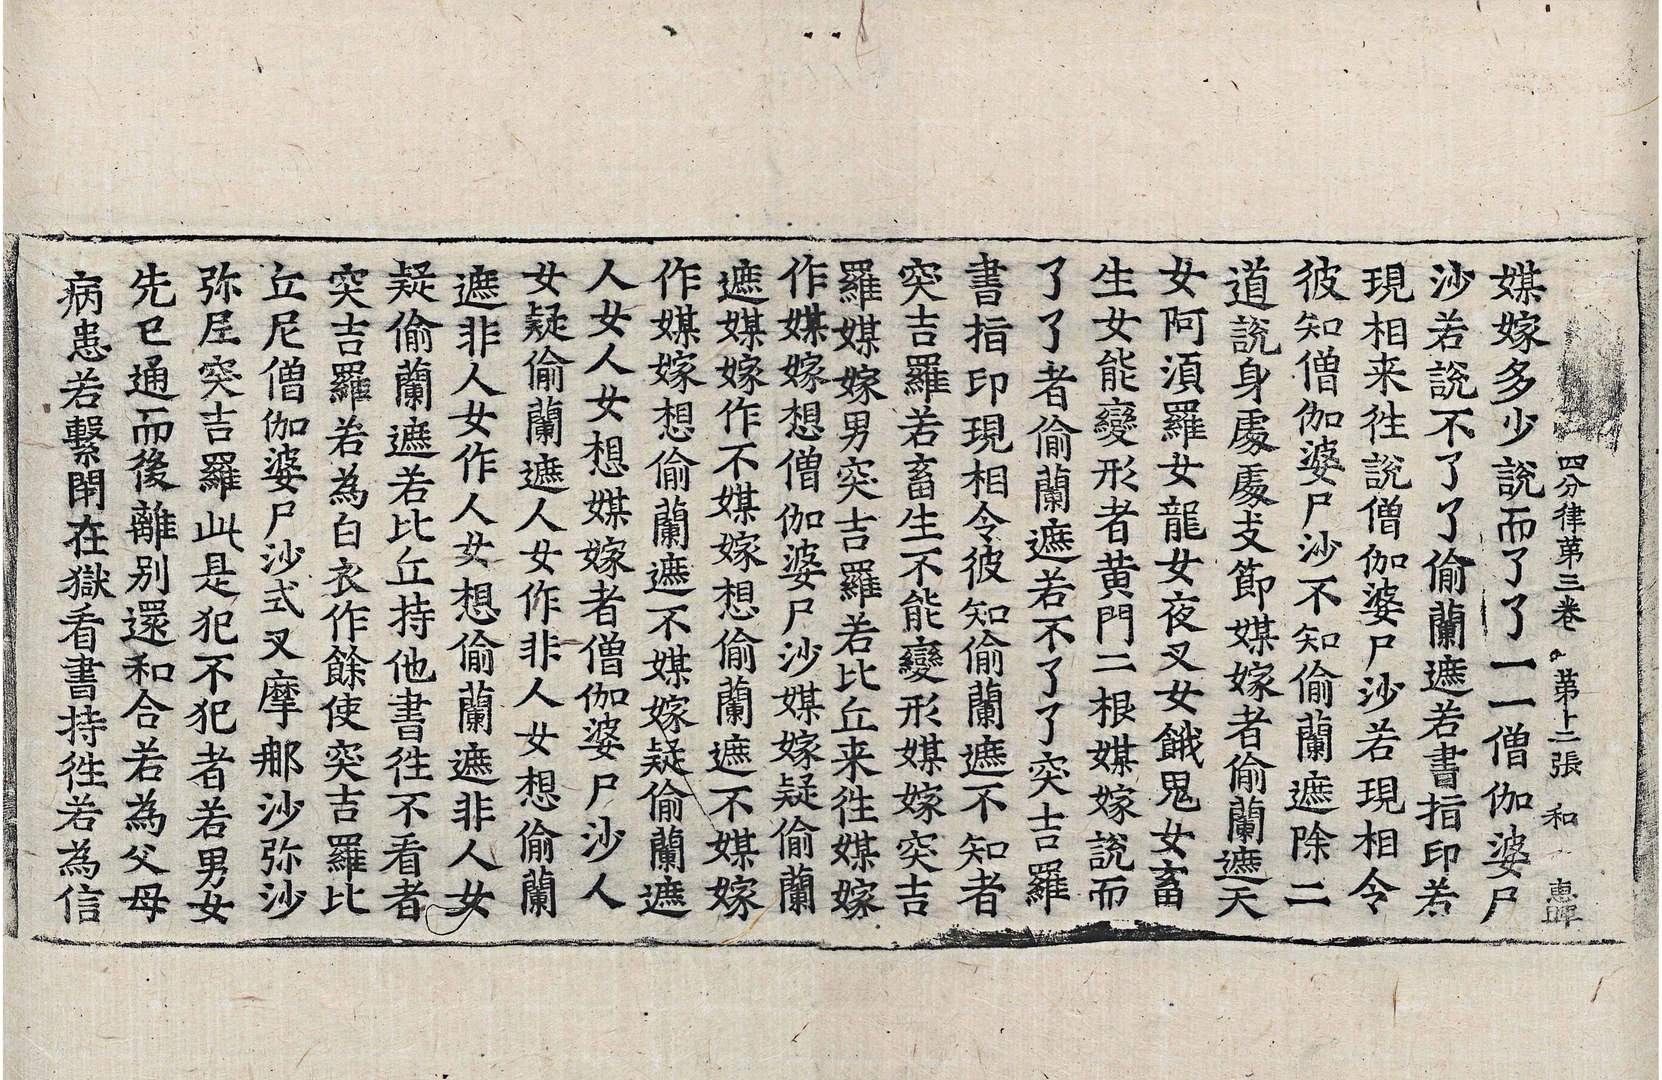 四分律第三卷 第十二張 和 惠暉
媒嫁多少說而了了一一僧伽婆尸
沙若說不了了偷蘭遮若書指印若
現相来往說僧伽婆尸沙若現相令
彼知僧伽婆尸沙不知偷蘭遮除二
道說身處處支節媒嫁者偷蘭遮天
女阿湏羅女龍女夜叉女餓鬼女畜
生女能變形者黄門二根媒嫁說而
了了者偷蘭遮若不了了突吉羅
書指印現相令彼知偷蘭遮不知者
突吉羅若畜生不能變形媒嫁突吉
羅媒嫁男突吉羅若比丘来往媒嫁
作媒嫁想僧伽婆尸沙媒嫁疑偷蘭
遮媒嫁作不媒嫁想偷蘭遮不媒嫁
作媒嫁想偷蘭遮不媒嫁疑偷蘭遮
人女人女想媒嫁者僧伽婆尸沙人
女疑偷蘭遮人女作非人女想偷蘭
遮非人女作人女想偷蘭遮非人女
疑偷蘭遮若比丘持他書往不看者
突吉羅若為白衣作餘使突吉羅比
丘尼僧伽婆尸沙式叉摩那沙弥沙
弥尼突吉羅此是犯不犯者若男女
先已通而後離別還和合若為父母
病患若繫閇在獄看書持往若為信